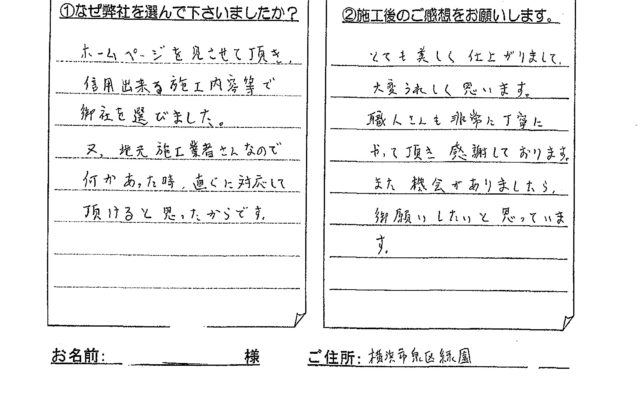 ①なぜ弊社を選んで下さいましたか？
ホームページを見させて頂き、
信用出来る施工内容等で
御社を選びました。
又、地元施工業者さんなので
何かあった時、直ぐに対応して
頂けると思ったからです。
②施工後のご感想をお願いします。
とても美しく仕上がりまして、
大変うれしく思います。
職人さんも非常に丁寧に
やって頂き感謝しております。
また機会がありましたら、
御願いしたいと思っていま
す。
お名前： 様
ご住所：横浜市泉区緑園